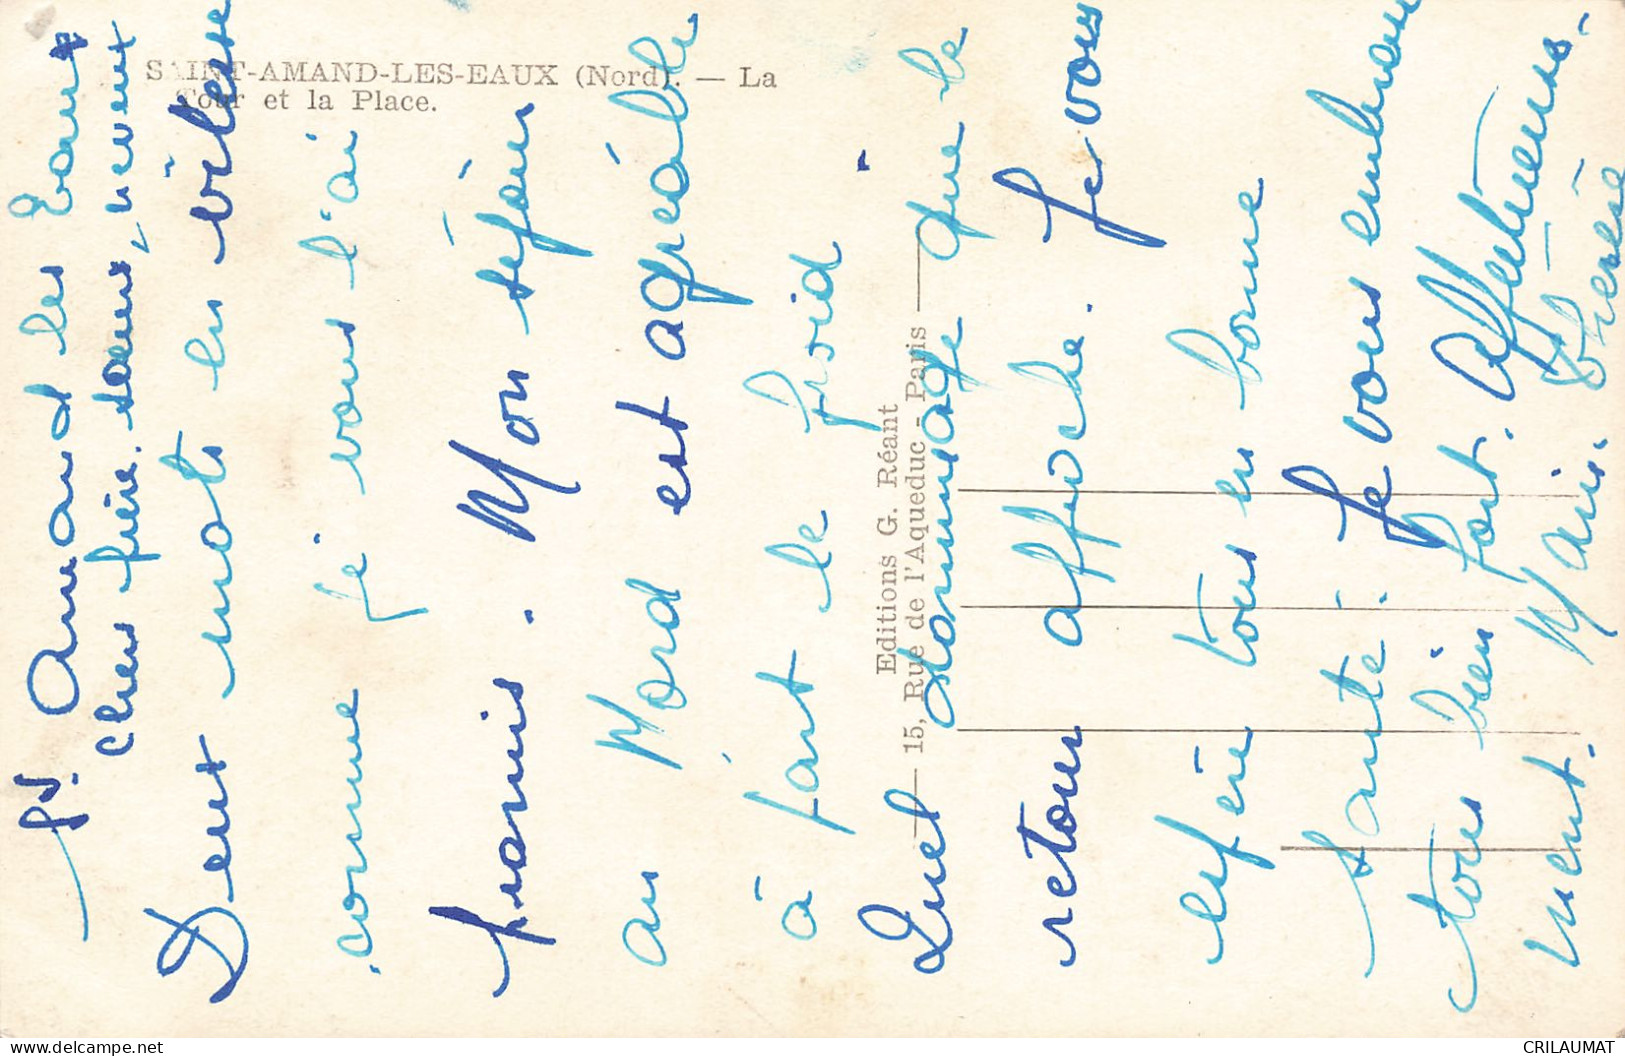 SAINT-AMAND-LES-EAUX (Nord). — La
Tour et la Place.
Editions G. Réant
15, Rue de l'Aqueduc - Paris
St. Amand les Eaux
Cher frère, sœur, neveux
Deux mots en vitesse
comme je vous l'ai
promis. Mon séjour
au Nord est agréable
à part le froid
Quel dommage que le
retour approche. Je vous
espère tous en bonne
santé. Je vous embrasse
tous bien fort. Affectueuse-
ment. Marie. Thérèse
www.delcampe.net
CRILAUMAT